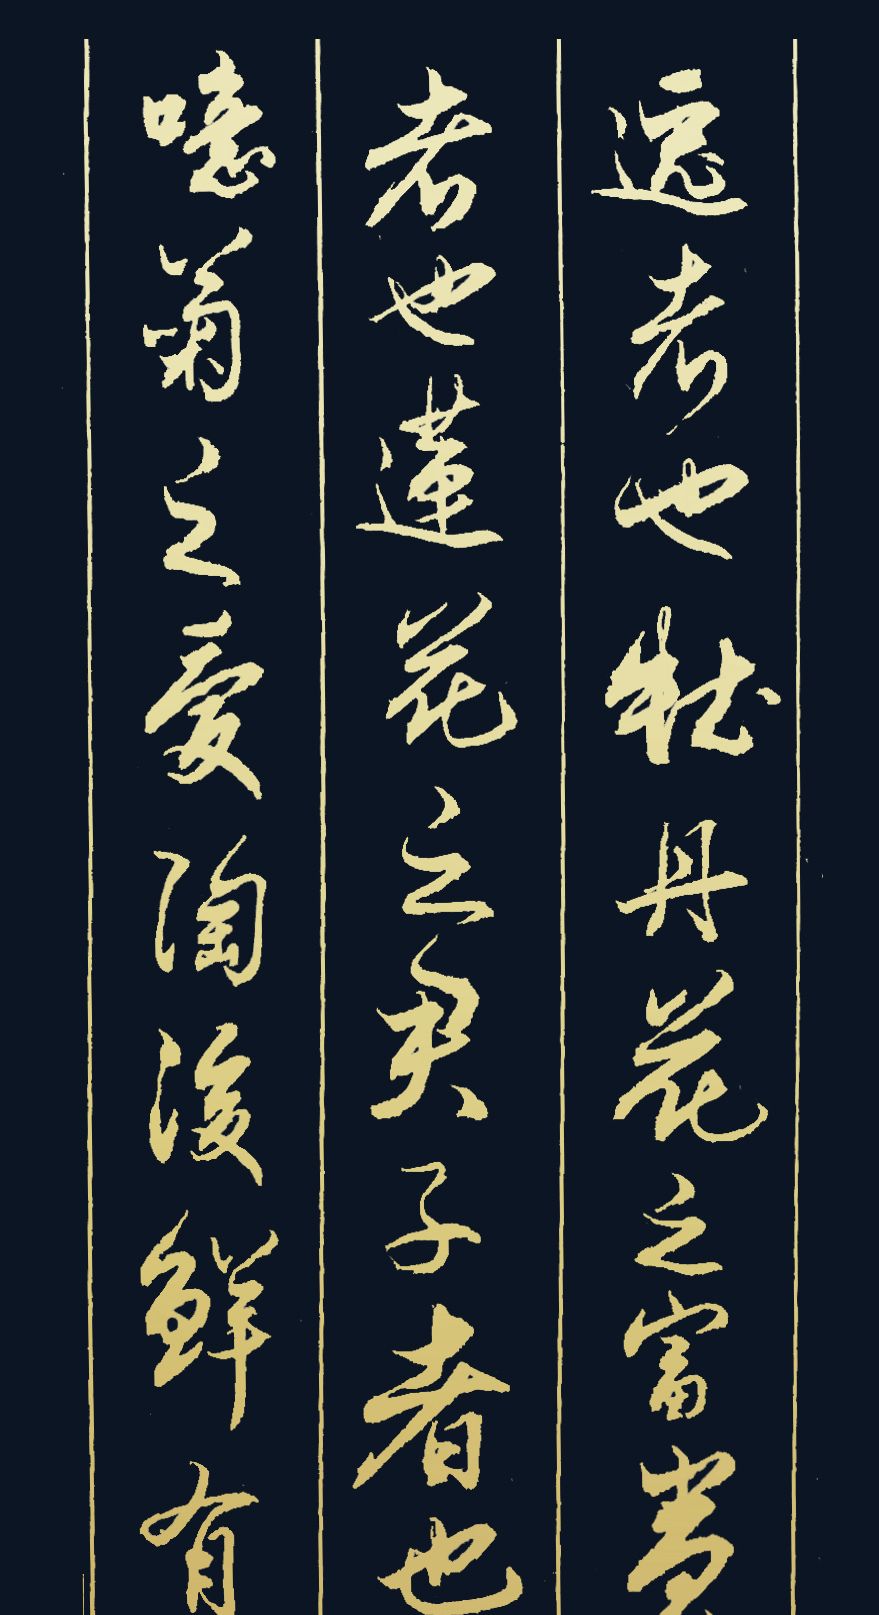 逸者也牡丹花之富貴
者也蓮花之君子者也
噫菊之愛陶後鮮有